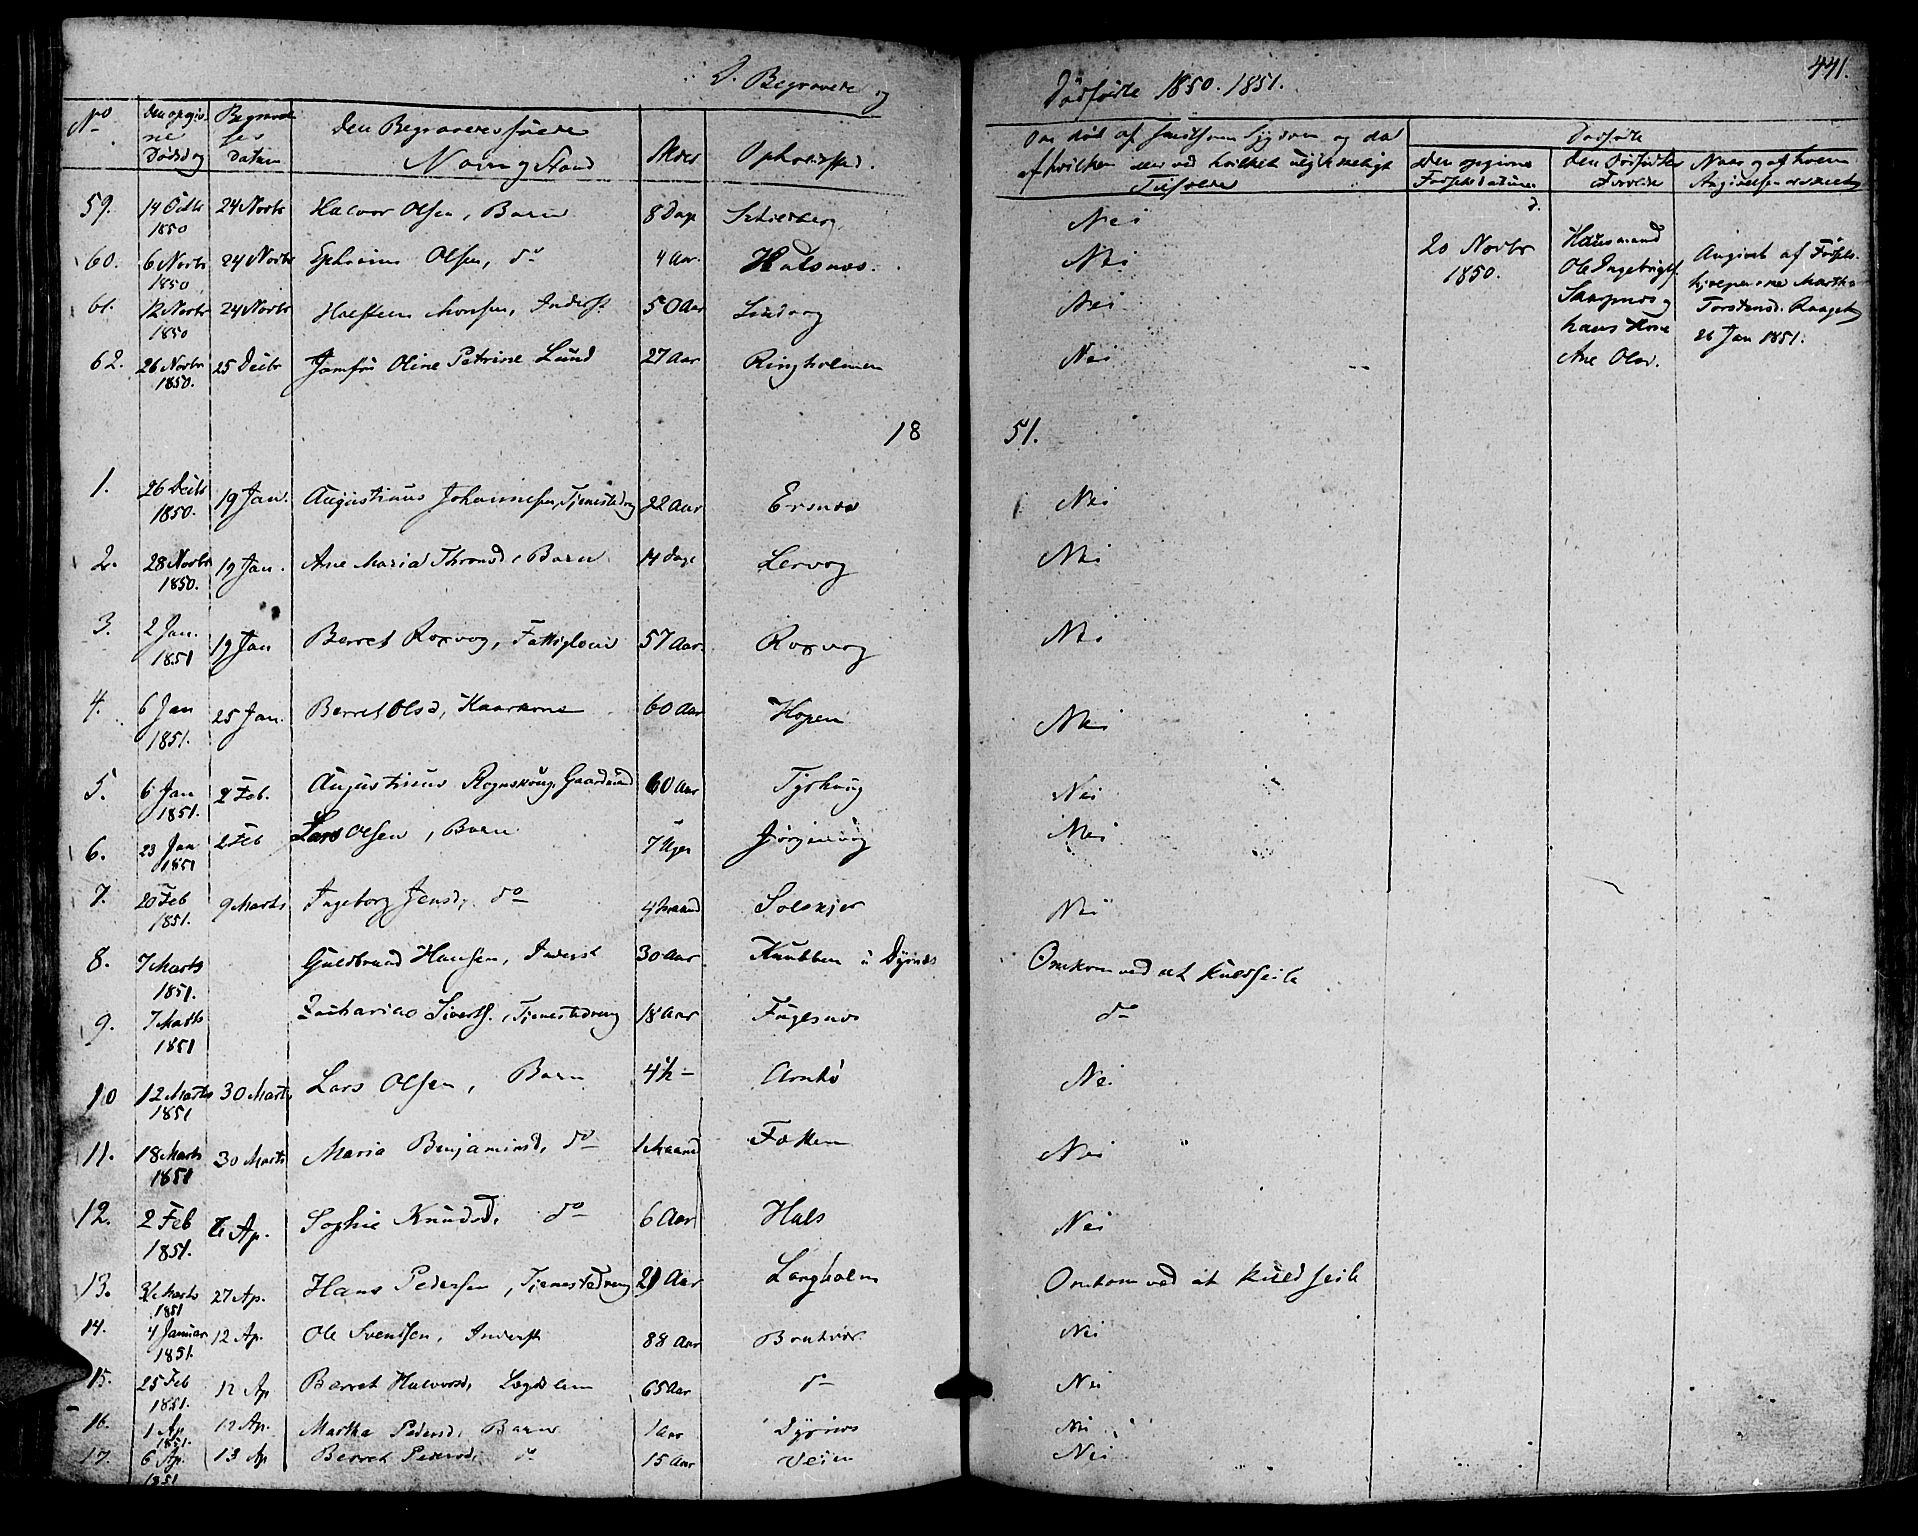 D. Begravede og Dødfødte 1850. 1851. 441.
No Den opgivne Dødsdag Begravelses Datum Den Begravedes fulde Navn og Stand Alder Opholdsted. Om død af smitsom Sygdom og da af hvilken eller ved hvilket ulykkeligt Tilfælde Dødfødte
den opgivne Fødselsdatum den Dødfødtes Forældre Naar og af hvem Angivelsen er skeet
59. 14 Octbr 1850 24 Novbr Halvor Olsen, Barn 8 Dage Nei
60. 6 Novbr 1850 24 Novbr Ephraim Olsen, do 4 Aar. Halsnæs. Nei
61. 12 Novbr 1850 24 Novbr Halsten Monsen, Inderst 50 Aar Lindvog Nei
62. 26 Novbr 1850. 25 Decbr Jomfru Oline Petrine Lund 27 Aar Ringholmen Nei
20 Novbr 1850. Huusmand Ole Ingebrigts. og hans Kone Ane Olsd. Angivet af Fødselshjelperske Martha Torstensd. 26 Jan 1851.
1851.
1. 26 Decbr 1850. 19 Jan. Augustinus Johannesen, Tjenestedreng 22 Aar Ersnæs Nei
2. 28 Novbr 1850. 19 Jan. Ane Maria Thronsd, Barn 14 Dage Lervog Nei
3. 2 Jan. 1851 19 Jan Berret Roxvog, Fattiglem 57 Aar. Roxvog Nei
4. 6 Jan 1851. 25 Jan. Berret Olsd, Kaarkone 60 Aar Hopen Nei
5. 6 Jan 1851. 2 Feb. Augustinus Rognskoug, Gaardmand 60 Aar Nei
6. 23 Jan 1851 2 Feb Lars Olsen, Barn 7 Uger Jørginvog Nei
7. 20 Feb 1851. 9 Marts Ingeborg Jensd, do 4 Maaned Solskjer Nei
8. 7 Marts 1851. Guldbrand Hansen, Inderst 30 Aar Knubben u Dyrnæs Omkom ved at kuldseile
9. 7 Marts 1851 Zacharias Siverts., Tjenestedreng 18 Aar Fuglesnæs do
10 12 Marts 1851 30 Marts Lars Olsen, Barn 4 Nei
11. 18 Marts 1851 30 Marts Maria Benjaminsd, do 1 Maaned Nei
12. 2 Feb 1851. 6 Ap. Sophie Knudsd, do 6 Aar Hals Nei
13. Marts 1851 27 Ap. Hans Pedersen, Tjenestedreng 21 Aar Langholm Omkom ved at kuldseile
14. 4 Januar 1851. 12 Ap. Ole Svendsen, Inderst 88 Aar Nei
15. 25 Feb 1851. 12 Ap Berret Halvorsd, Lægdslem 65 Aar do Nei
16. 1 Ap 1851. 12 Ap. Martha Pedersd, Barn 1 Aar Dyrnæs Nei
17. 6 Ap. 1851 13 Ap Berret Pedersd, do 15 Aar Veien Nei